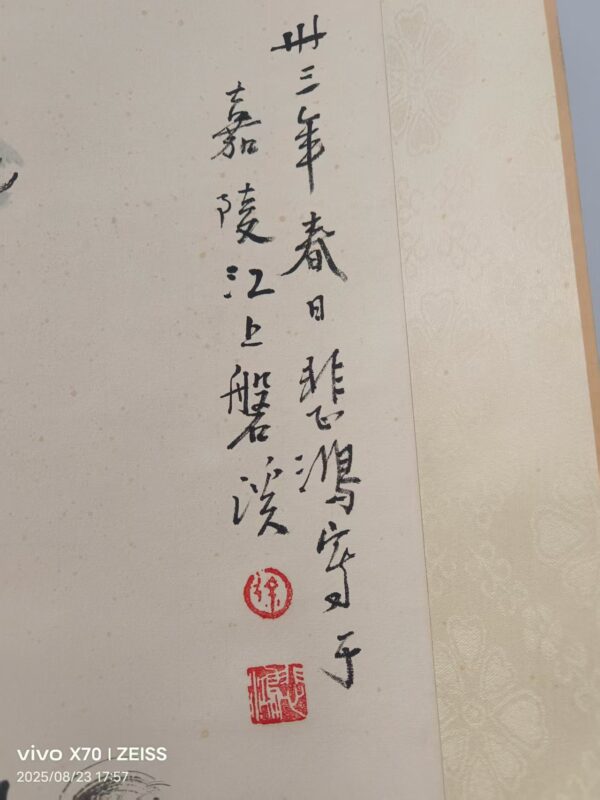 卅三年春日悲鸿写于
嘉陵江上磐溪
徐
悲鸿
vivo X70 | ZEISS
2025/08/23 17:57